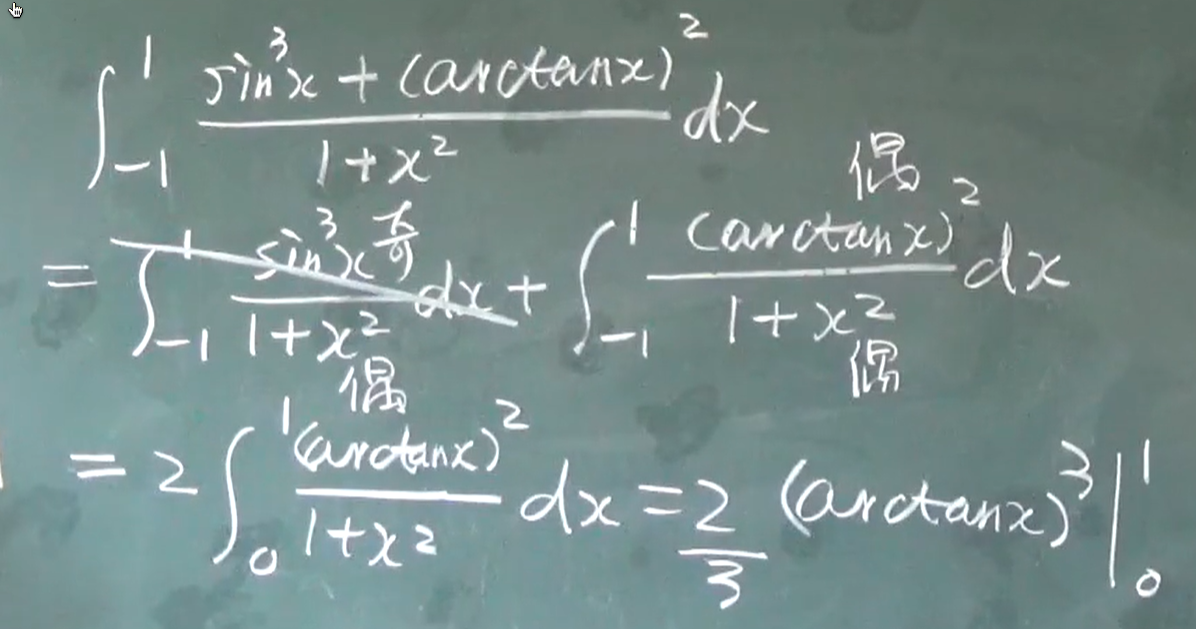 ∫_{-1}^{1} \frac{sin³x + (arctanx)²}{1+x²} dx
= ∫_{-1}^{1} \frac{sin³x 奇}{1+x² 偶} dx + ∫_{-1}^{1} \frac{(arctanx)² 偶}{1+x² 偶} dx
= 2 ∫_{0}^{1} \frac{(arctanx)²}{1+x²} dx = \frac{2}{3} (arctanx)³ |_{0}^{1}